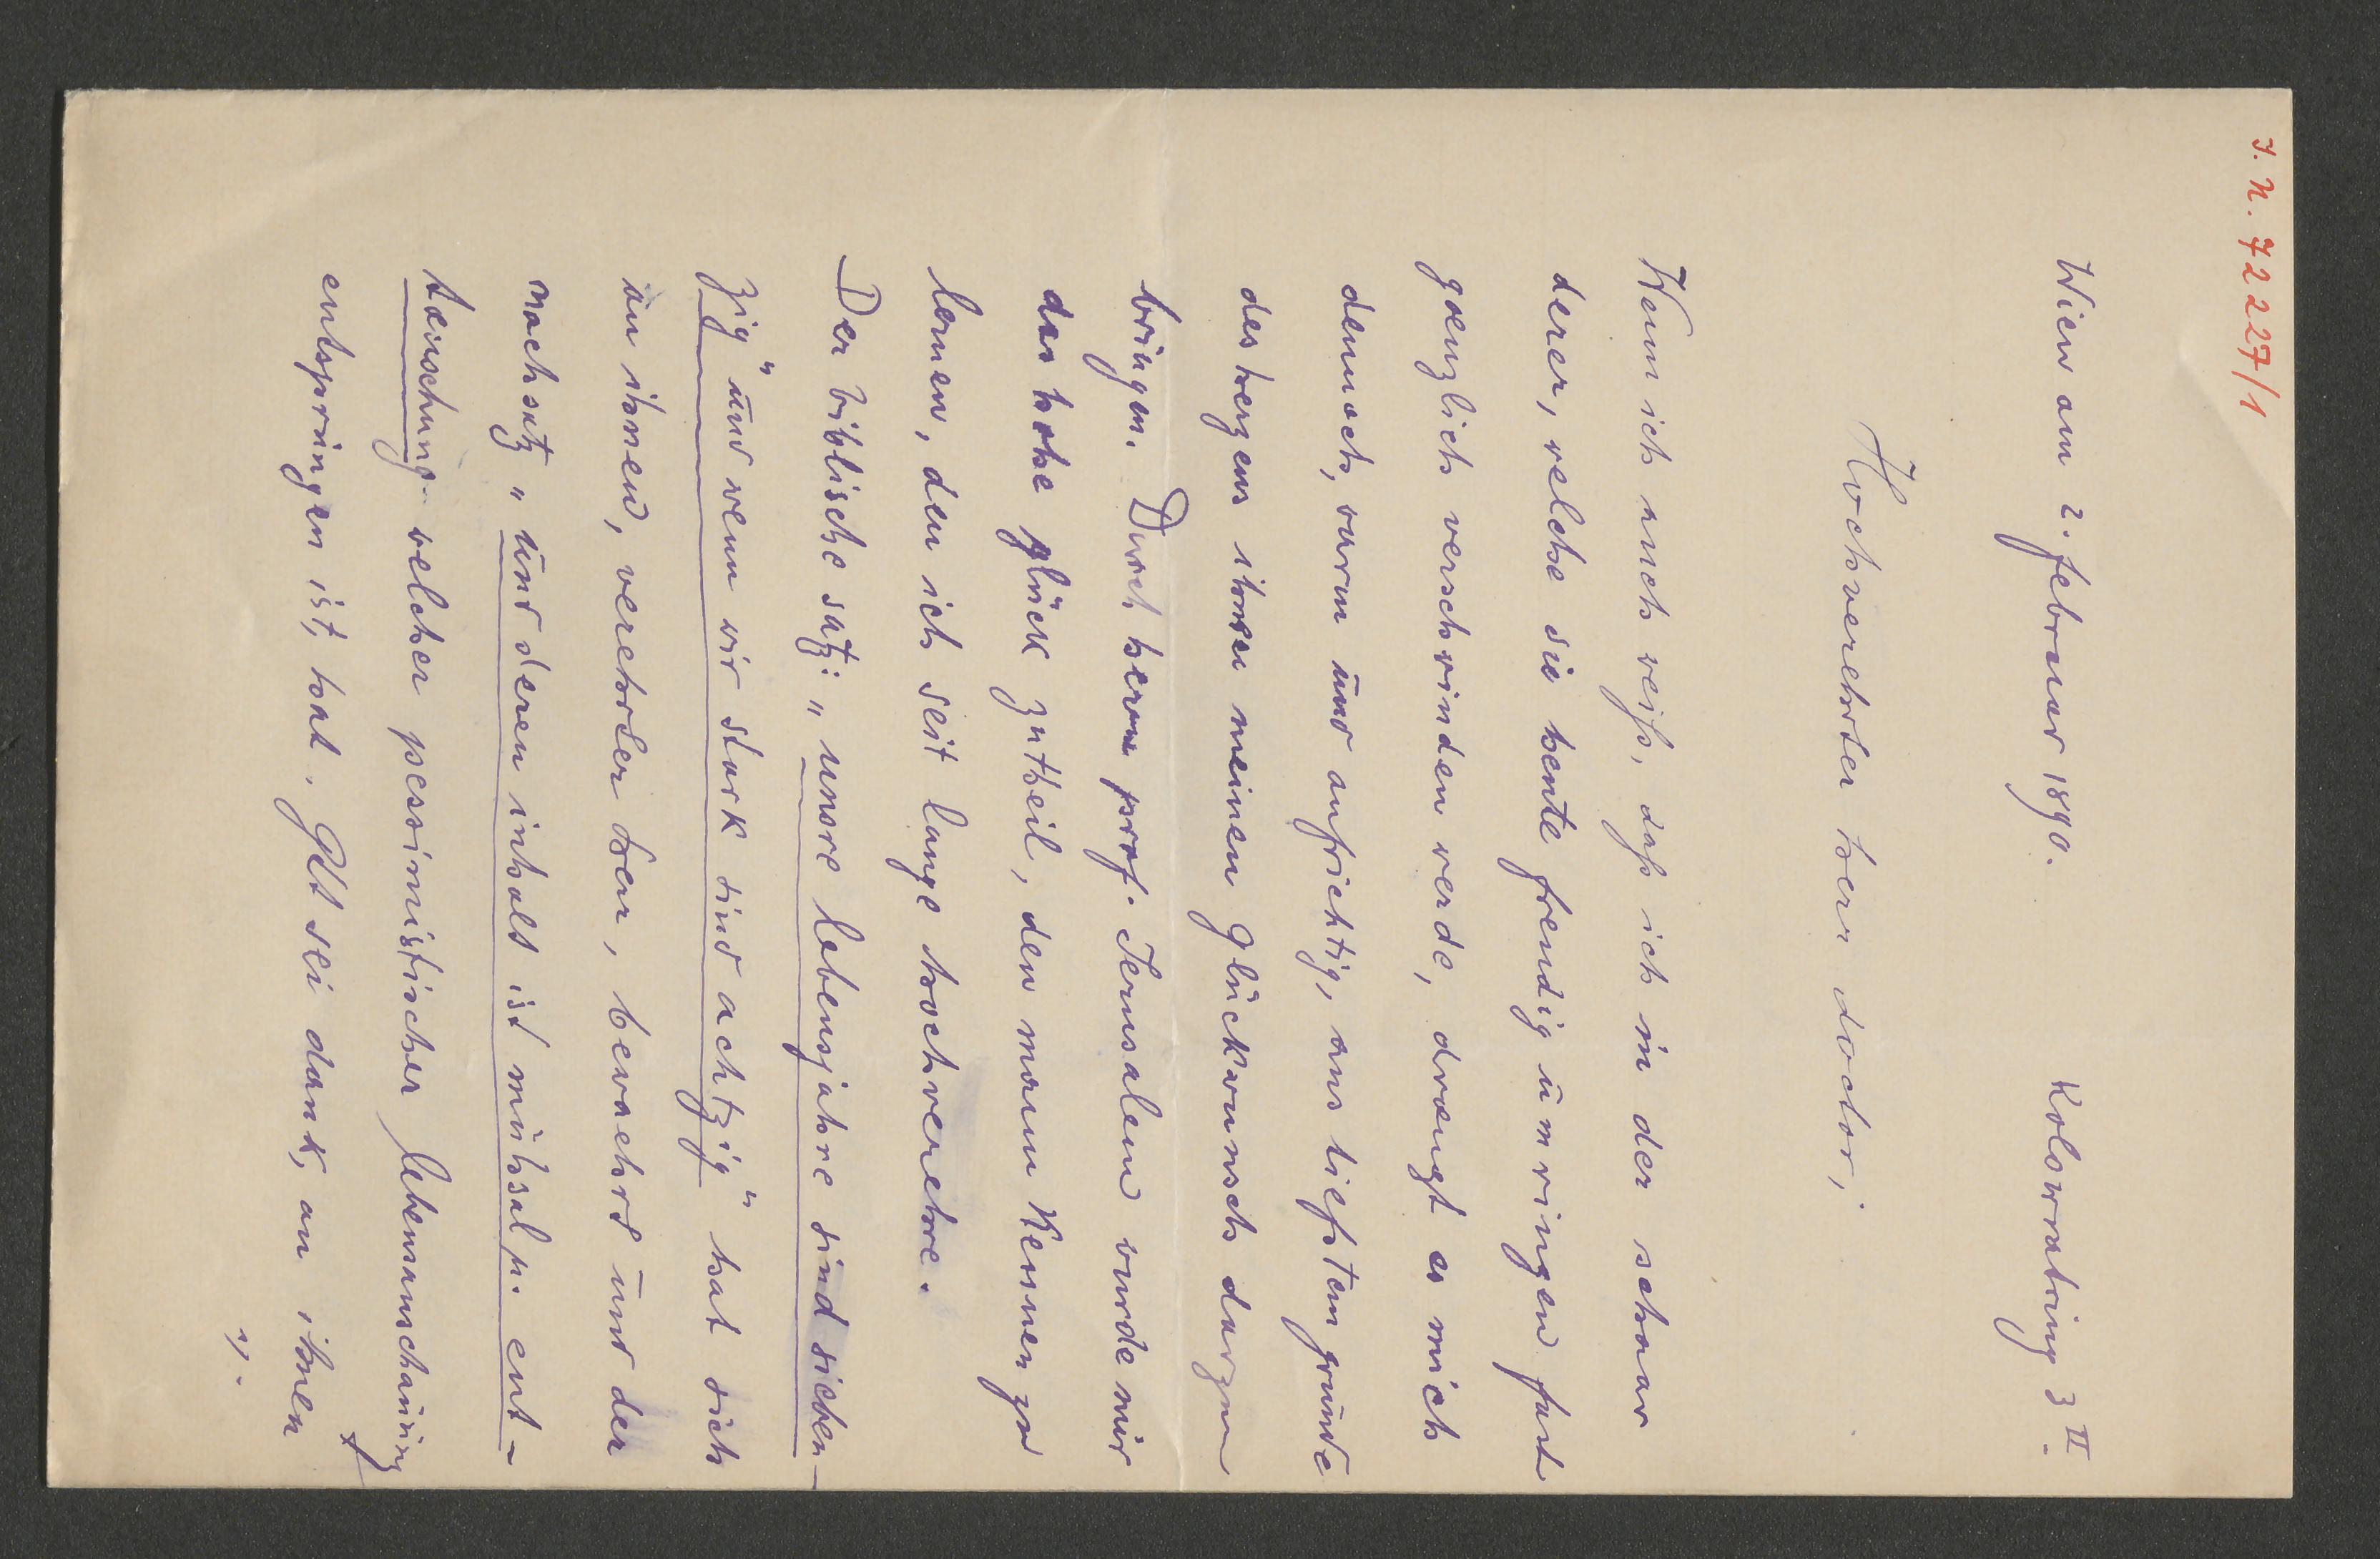 I. N. 72227/1
Wien am 2. februar 1890. Kolowratring 3 II.
Hochverehrter herr doctor,
Wenn ich auch weiß, daß ich in der schaar
derer, welche sie heute freudig umringen fast
gaenzlich verschwinden werde, draengt es mich
dennoch, warm und aufrichtig, aus tiefstem grunde
des herzens ihnen meinen glückwunsch darzu
bringen. Durch herrn prof. Jerusalem wurde mir
das hohe glück zutheil, den mann kennen zu
lernen, den ich seit lange hochverehre.
Der biblische satz: „unsre lebensjahre sind sieben-
zig" und wenn wir stark sind achtzig" hat sich
an ihnen, verehrter herr, bewaehrt und der
nachsatz „und deren inhalt ist mühsal u. ent-
taeuschung welcher pessimistischer lebensanschauung
entsprungen ist, hat, Gtt sei dank, an ihnen